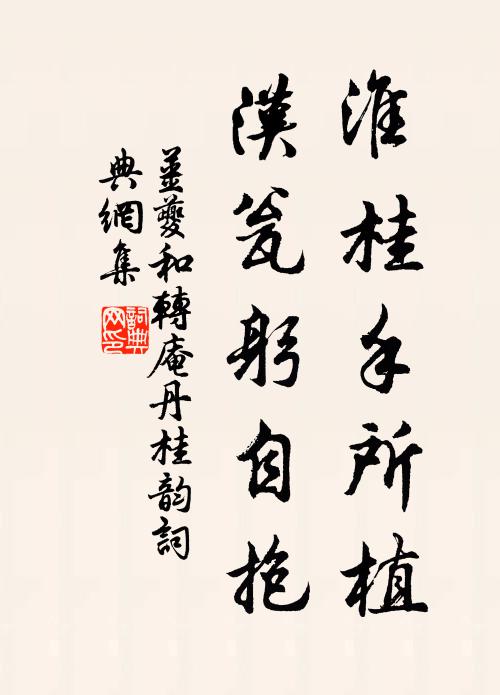 淮桂手所植
漢瓮躬自抱
姜夔和轉庵丹桂韵詞
典網集
詞典网印